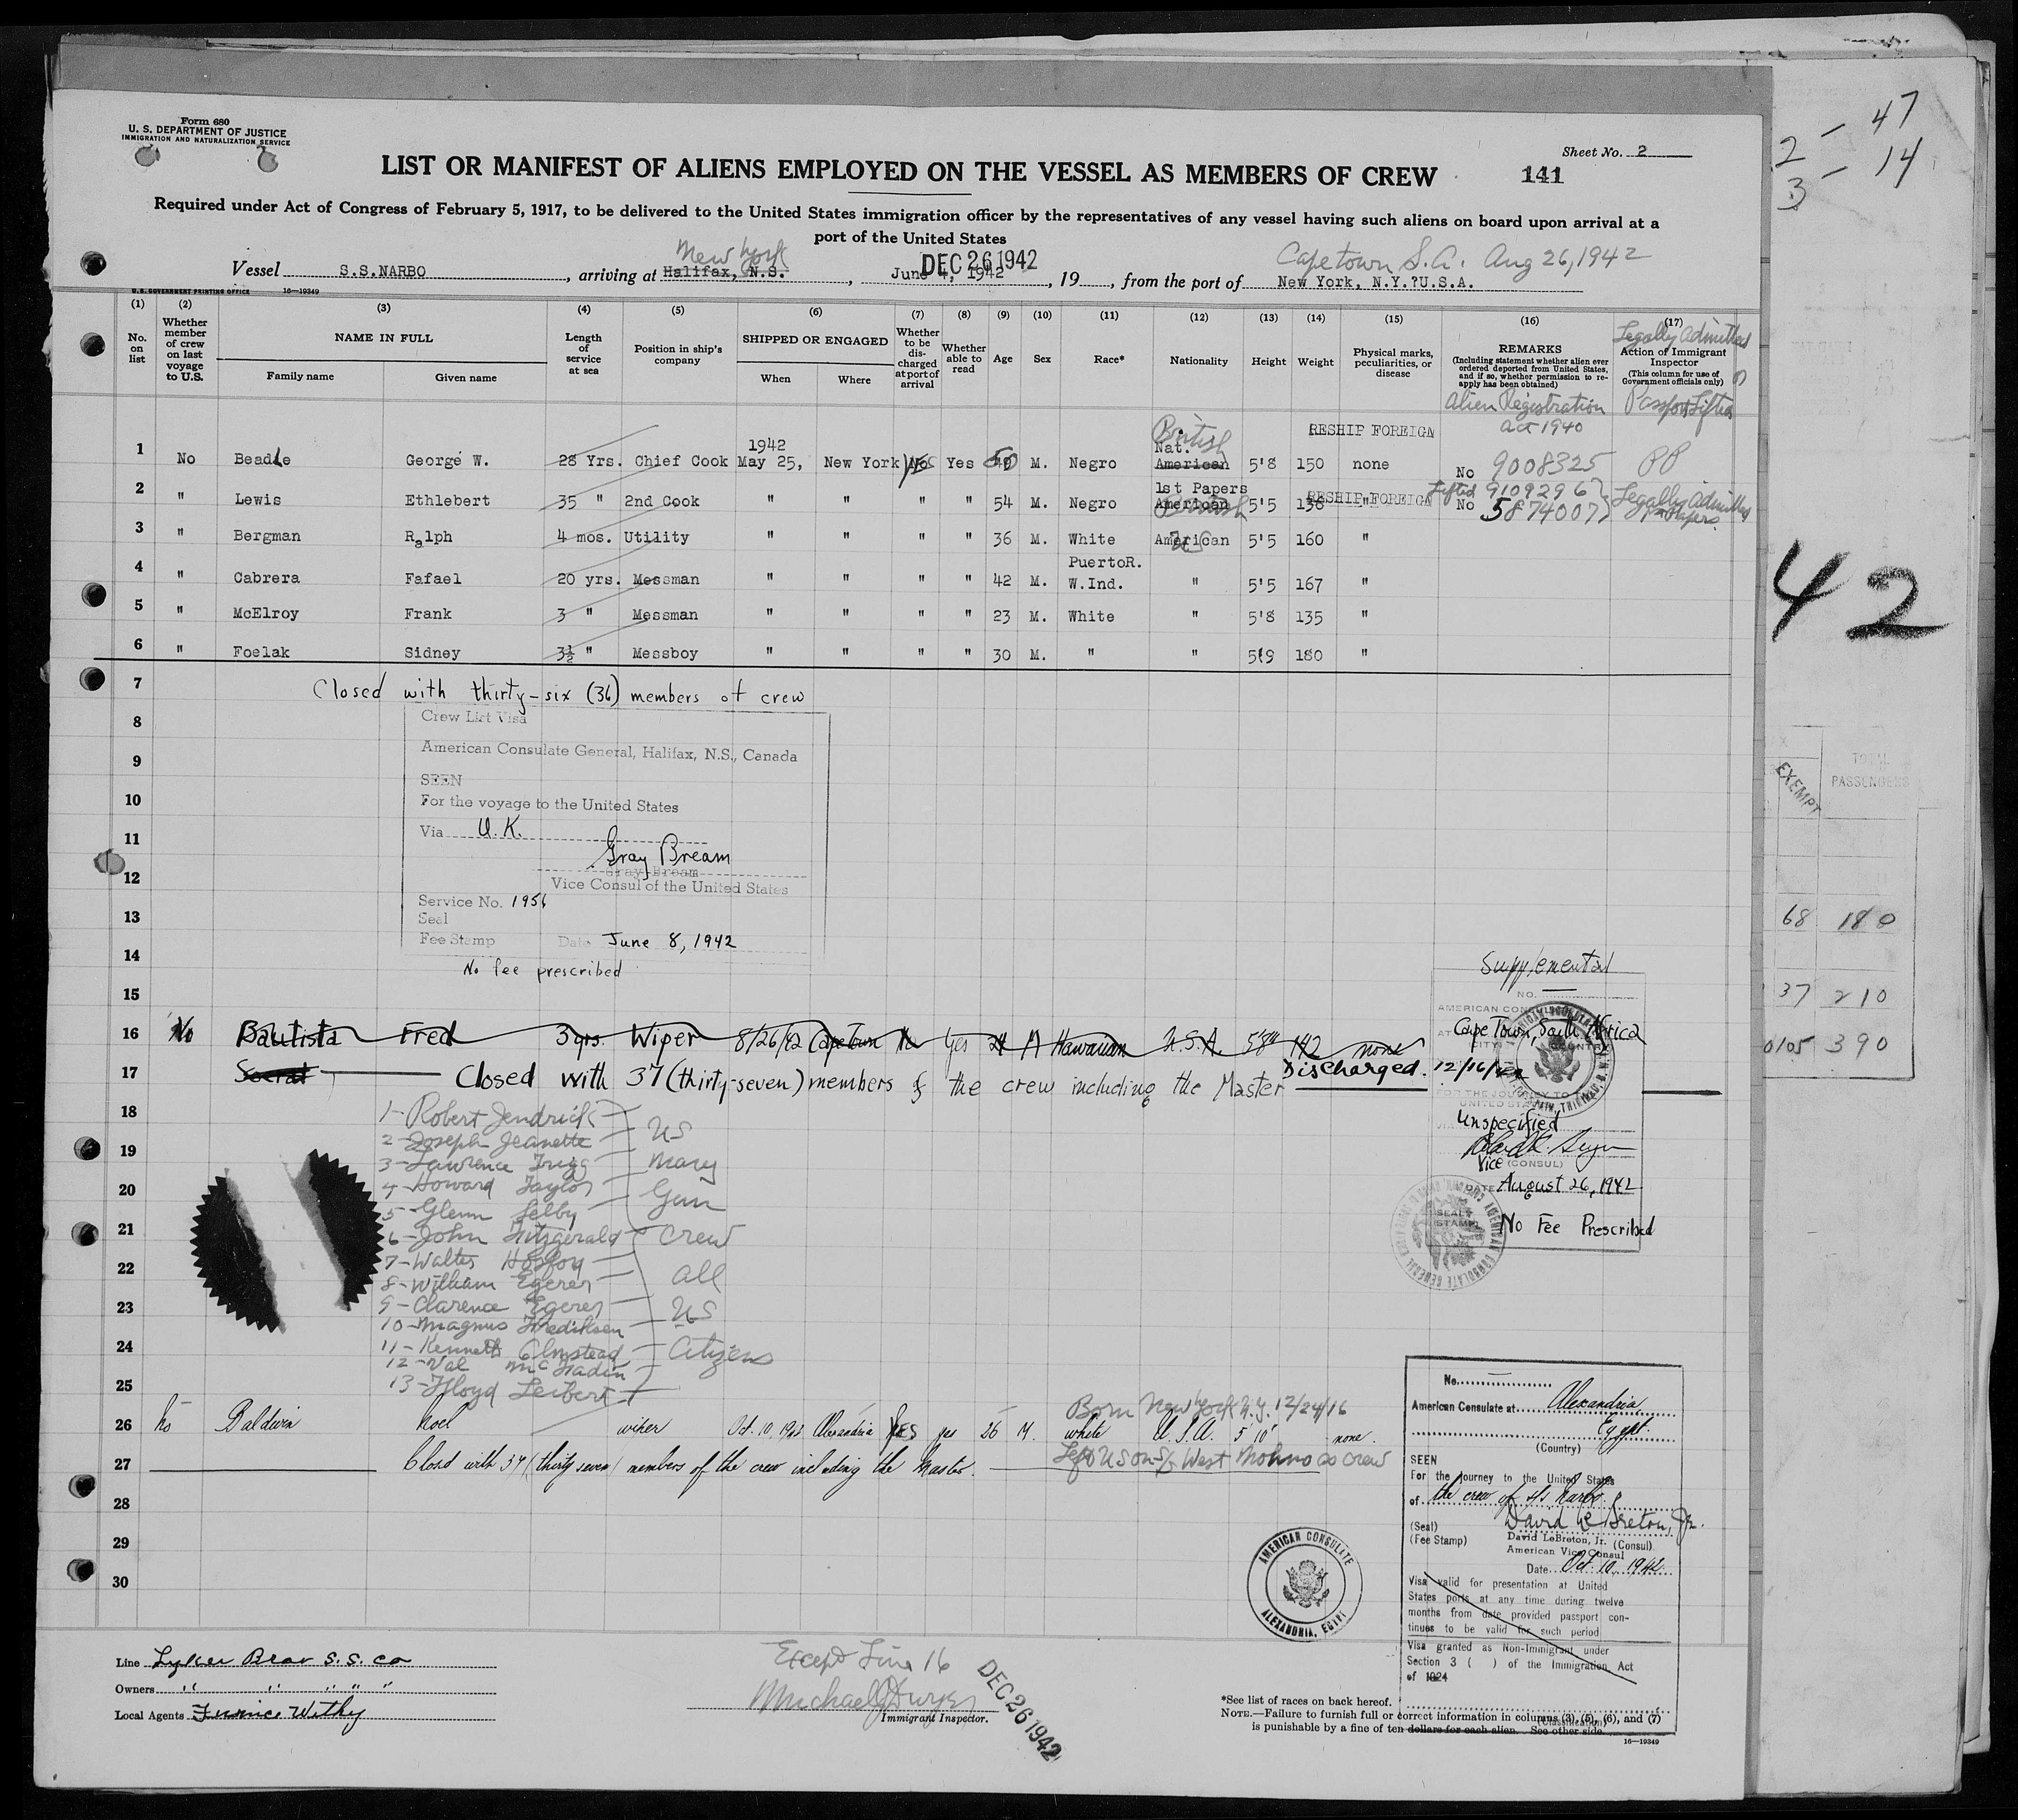 Form 680
U. S. DEPARTMENT OF JUSTICE
IMMIGRATION AND NATURALIZATION SERVICE
Sheet No. 2
LIST OR MANIFEST OF ALIENS EMPLOYED ON THE VESSEL AS MEMBERS OF CREW 141
Required under Act of Congress of February 5, 1917, to be delivered to the United States immigration officer by the representatives of any vessel having such aliens on board upon arrival at a
port of the United States
New York DEC 26 1942 Capetown S.A. Aug 26, 1942
Vessel S.S.NARBO, arriving at Halifax, N.S., June 4, 1942, 19, from the port of New York, N.Y.?U.S.A.
U.S. GOVERNMENT PRINTING OFFICE 16—19349
(1) (2) (3) (4) (5) (6) (7) (8) (9) (10) (11) (12) (13) (14) (15) (16) (17)
No. on list
Whether member of crew on last voyage to U.S.
NAME IN FULL
Family name
Given name
Length of service at sea
Position in ship's company
SHIPPED OR ENGAGED
When
Where
Whether to be discharged at port of arrival
Whether able to read
Age
Sex
Race*
Nationality
Height
Weight
Physical marks, peculiarities, or disease
REMARKS
(Including statement whether alien ever ordered deported from United States, and if so, whether permission to reapply has been obtained)
Alien Registration
act 1940
Legally Admitted
Action of Immigrant Inspector
(This column for use of Government officials only)
Passport Lifted
1942 British Nat. RESHIP FOREIGN
1 No Beadle George W. 28 Yrs. Chief Cook May 25, New York Yes Yes 50 M. Negro American 5'8 150 none No 9008325 PP
1st Papers RESHIP FOREIGN Lifted 9109296
2 " Lewis Ethlebert 35 " 2nd Cook " " " " 54 M. Negro American British 5'5 136 " No 5874007 Legally Admitted
3 " Bergman Ralph 4 mos. Utility " " " " 36 M. White American US 5'5 160 "
PuertoR.
4 " Cabrera Fafael 20 yrs. Messman " " " " 42 M. W.Ind. " 5'5 167 "
5 " McElroy Frank 3 " Messman " " " " 23 M. White " 5'8 135 "
6 " Foelak Sidney 3½ " Messboy " " " " 30 M. " " 5'9 180 "
7 Closed with thirty-six (36) members of crew
8 Crew List Visa
American Consulate General, Halifax, N.S., Canada
9 SEEN
10 For the voyage to the United States
11 Via U.K.
Gray Bream
12 Gray Bream
Vice Consul of the United States
13 Service No. 1956
Seal
14 Fee Stamp Date June 8, 1942
No fee prescribed
15
Supplemental
NO.
AMERICAN CON
16 No Bautista Fred 3 yrs. Wiper 8/26/42 Capetown No Yes 21 M Hawaiian U.S.A. 5'8" 142 none Cape Town, South Africa
17 Closed with 37 (thirty-seven) members of the crew including the Master Discharged. 12/16/42
Unspecified
Vice (CONSUL)
DATE August 26, 1942
SEAL & STAMP
No Fee Prescribed
AMERICAN CONSULATE GENERAL
18 1- Robert Jendrick
2- Joseph Jeanette US
19 3- Lawrence Trigg Navy
20 4- Howard Taylor Gun
5- Glenn Selby
21 6- John Fitzgerald Crew
7- Walter
22 8- William Egerer all
23 9- Clarence Egerer US
10- Magnus Fredriksen
24 11- Kenneth Olmstead Citizens
12- Val McFadin
25 13- Floyd Leibert
Born New York N.Y. 12/24/16
26 No Baldwin Noel wiper Oct. 10, 1942 Alexandria Yes yes 26 M. white U.S.A. 5'10" none.
27 Closed with 37 (thirty seven) members of the crew including the Master. Left US on S/S West as crew
28
29
30
No.
American Consulate at Alexandria
Egypt.
(Country)
SEEN
For the journey to the United States
of the crew of s/s Narbo.
(Seal) David LeBreton, Jr.
(Fee Stamp) David LeBreton, Jr. (Consul)
American Vice Consul
Date Oct. 10, 1942
Visa valid for presentation at United
States ports at any time during twelve
months from date provided passport con-
tinues to be valid for such period
Visa granted as Non-Immigrant under
Section 3 ( ) of the Immigration Act
of 1924
(Classification)
AMERICAN CONSULATE
ALEXANDRIA, EGYPT
Line Lykes Bros S.S. Co
Owners " " " " "
Local Agents Furnice Withy
Except Line 16
Michael J Dwyer
Immigrant Inspector.
DEC 26 1942
*See list of races on back hereof.
NOTE.—Failure to furnish full or correct information in columns (3), (5), (6), and (7)
is punishable by a fine of ten dollars for each alien. See other side.
16—19349
2 - 47
3 - 14
42
EXEMPT
TOTAL PASSENGERS
68 180
37 210
0105 390